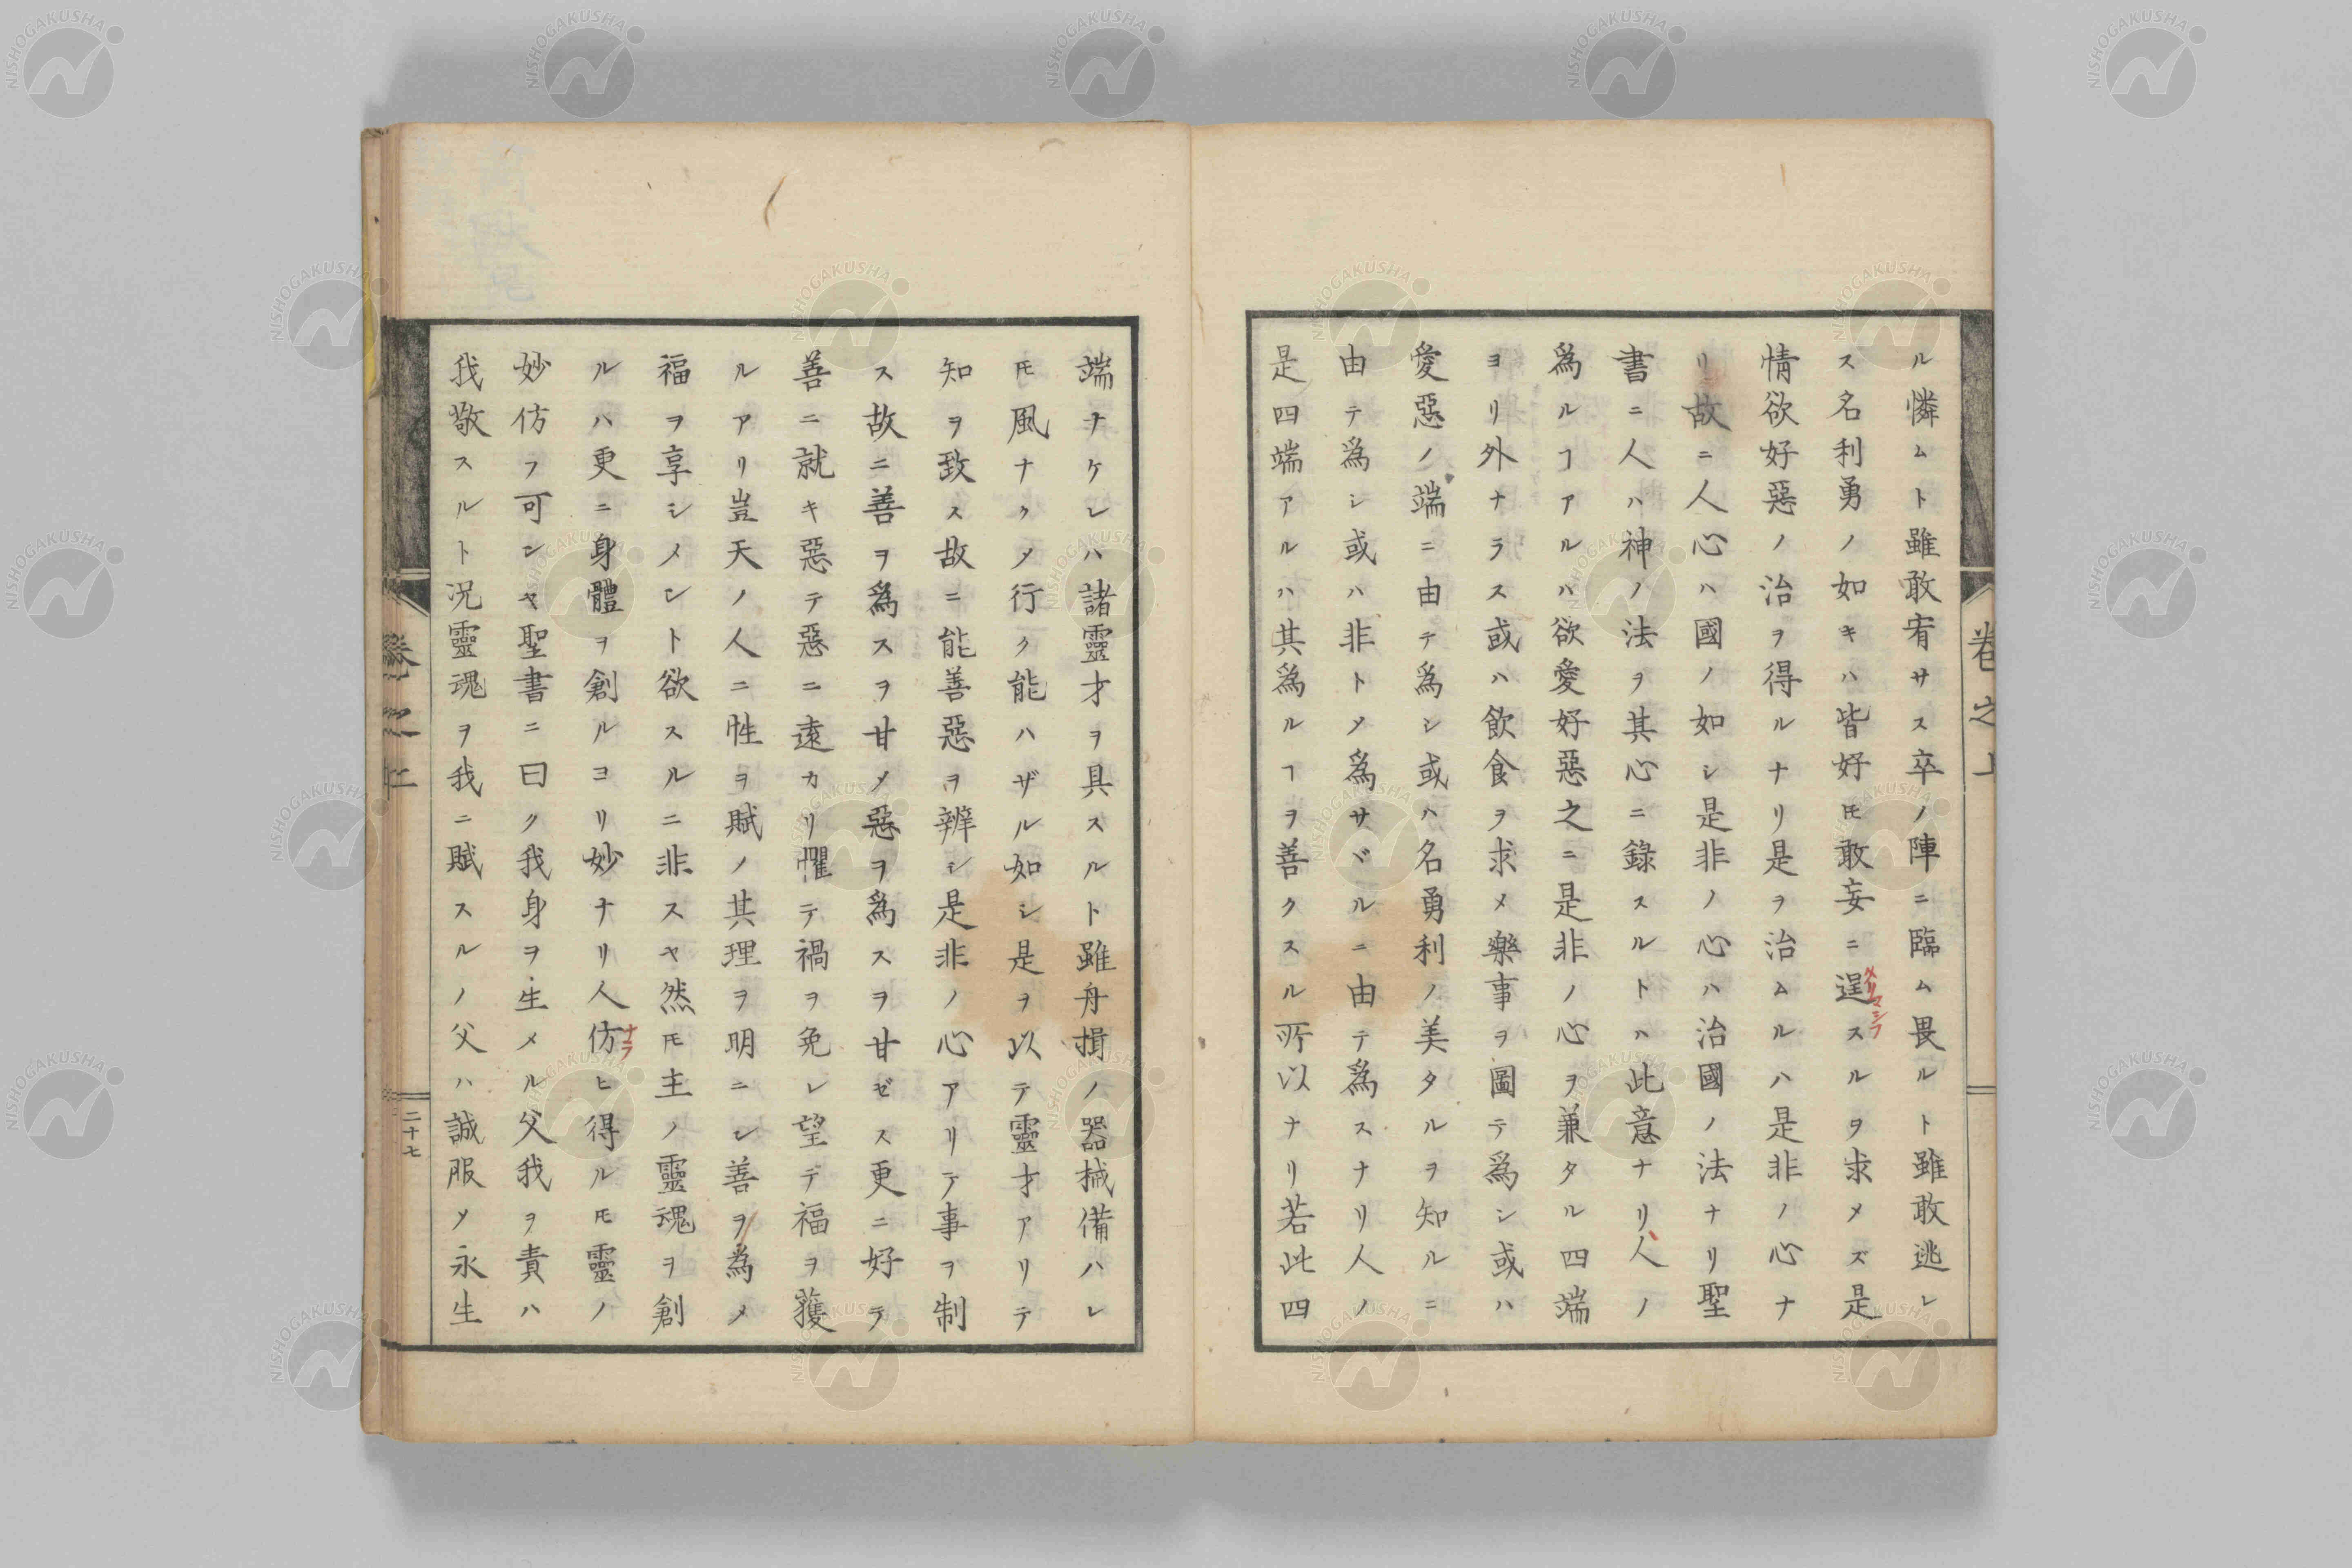 ル憐ムト雖敢宥サス卒ノ陣ニ臨ム畏ルト雖敢逃レ
ス名利勇ノ如キハ皆好𪜈敢妄ニ逞スルヲ求メズ是
情欲好惡ノ治ヲ得ルナリ是ヲ治ムルハ是非ノ心ナ
リ故ニ人心ハ國ノ如シ是非ノ心ハ治國ノ法ナリ聖
書ニ人ハ神ノ法ヲ其心ニ錄スルトハ此意ナリ人ノ
爲ルヿアルハ欲愛好惡之ニ是非ノ心ヲ兼タル四端
ヨリ外ナラス或ハ飮食ヲ求メ樂事ヲ圖テ爲シ或ハ
愛惡ノ端ニ由テ爲シ或ハ名勇利ノ美タルヲ知ルニ
由テ爲シ或ハ非トメ爲サヾルニ由テ爲スナリ人ノ
是四端アルハ其爲ルヿヲ善クスル所以ナリ若此四
端ナケレハ諸靈才ヲ具スルト雖舟揖ノ器械備ハレ
𪜈風ナクメ行ク能ハザル如シ是ヲ以テ靈才アリテ
知ヲ致ス故ニ能善惡ヲ辨シ是非ノ心アリテ事ヲ制
ス故ニ善ヲ爲スヲ甘メ惡ヲ爲スヲ甘ゼス更ニ好テ
善ニ就キ惡テ惡ニ遠カリ懼テ禍ヲ免レ望デ福ヲ獲
ルアリ豈天ノ人ニ性ヲ賦ノ其理ヲ明ニシ善ヲ爲メ
福ヲ享シメント欲スルニ非スヤ然𪜈主ノ靈魂ヲ創
ルハ更ニ身體ヲ創ルヨリ妙ナリ人仿ヒ得ル𪜈靈ノ
妙仿フ可ンヤ聖書ニ曰ク我身ヲ生メル父我ヲ責ハ
我敬スルト况靈魂ヲ我ニ賦スルノ父ハ誠服メ永生
卷之上
二十七
ナラ
NISHOGAKUSHA